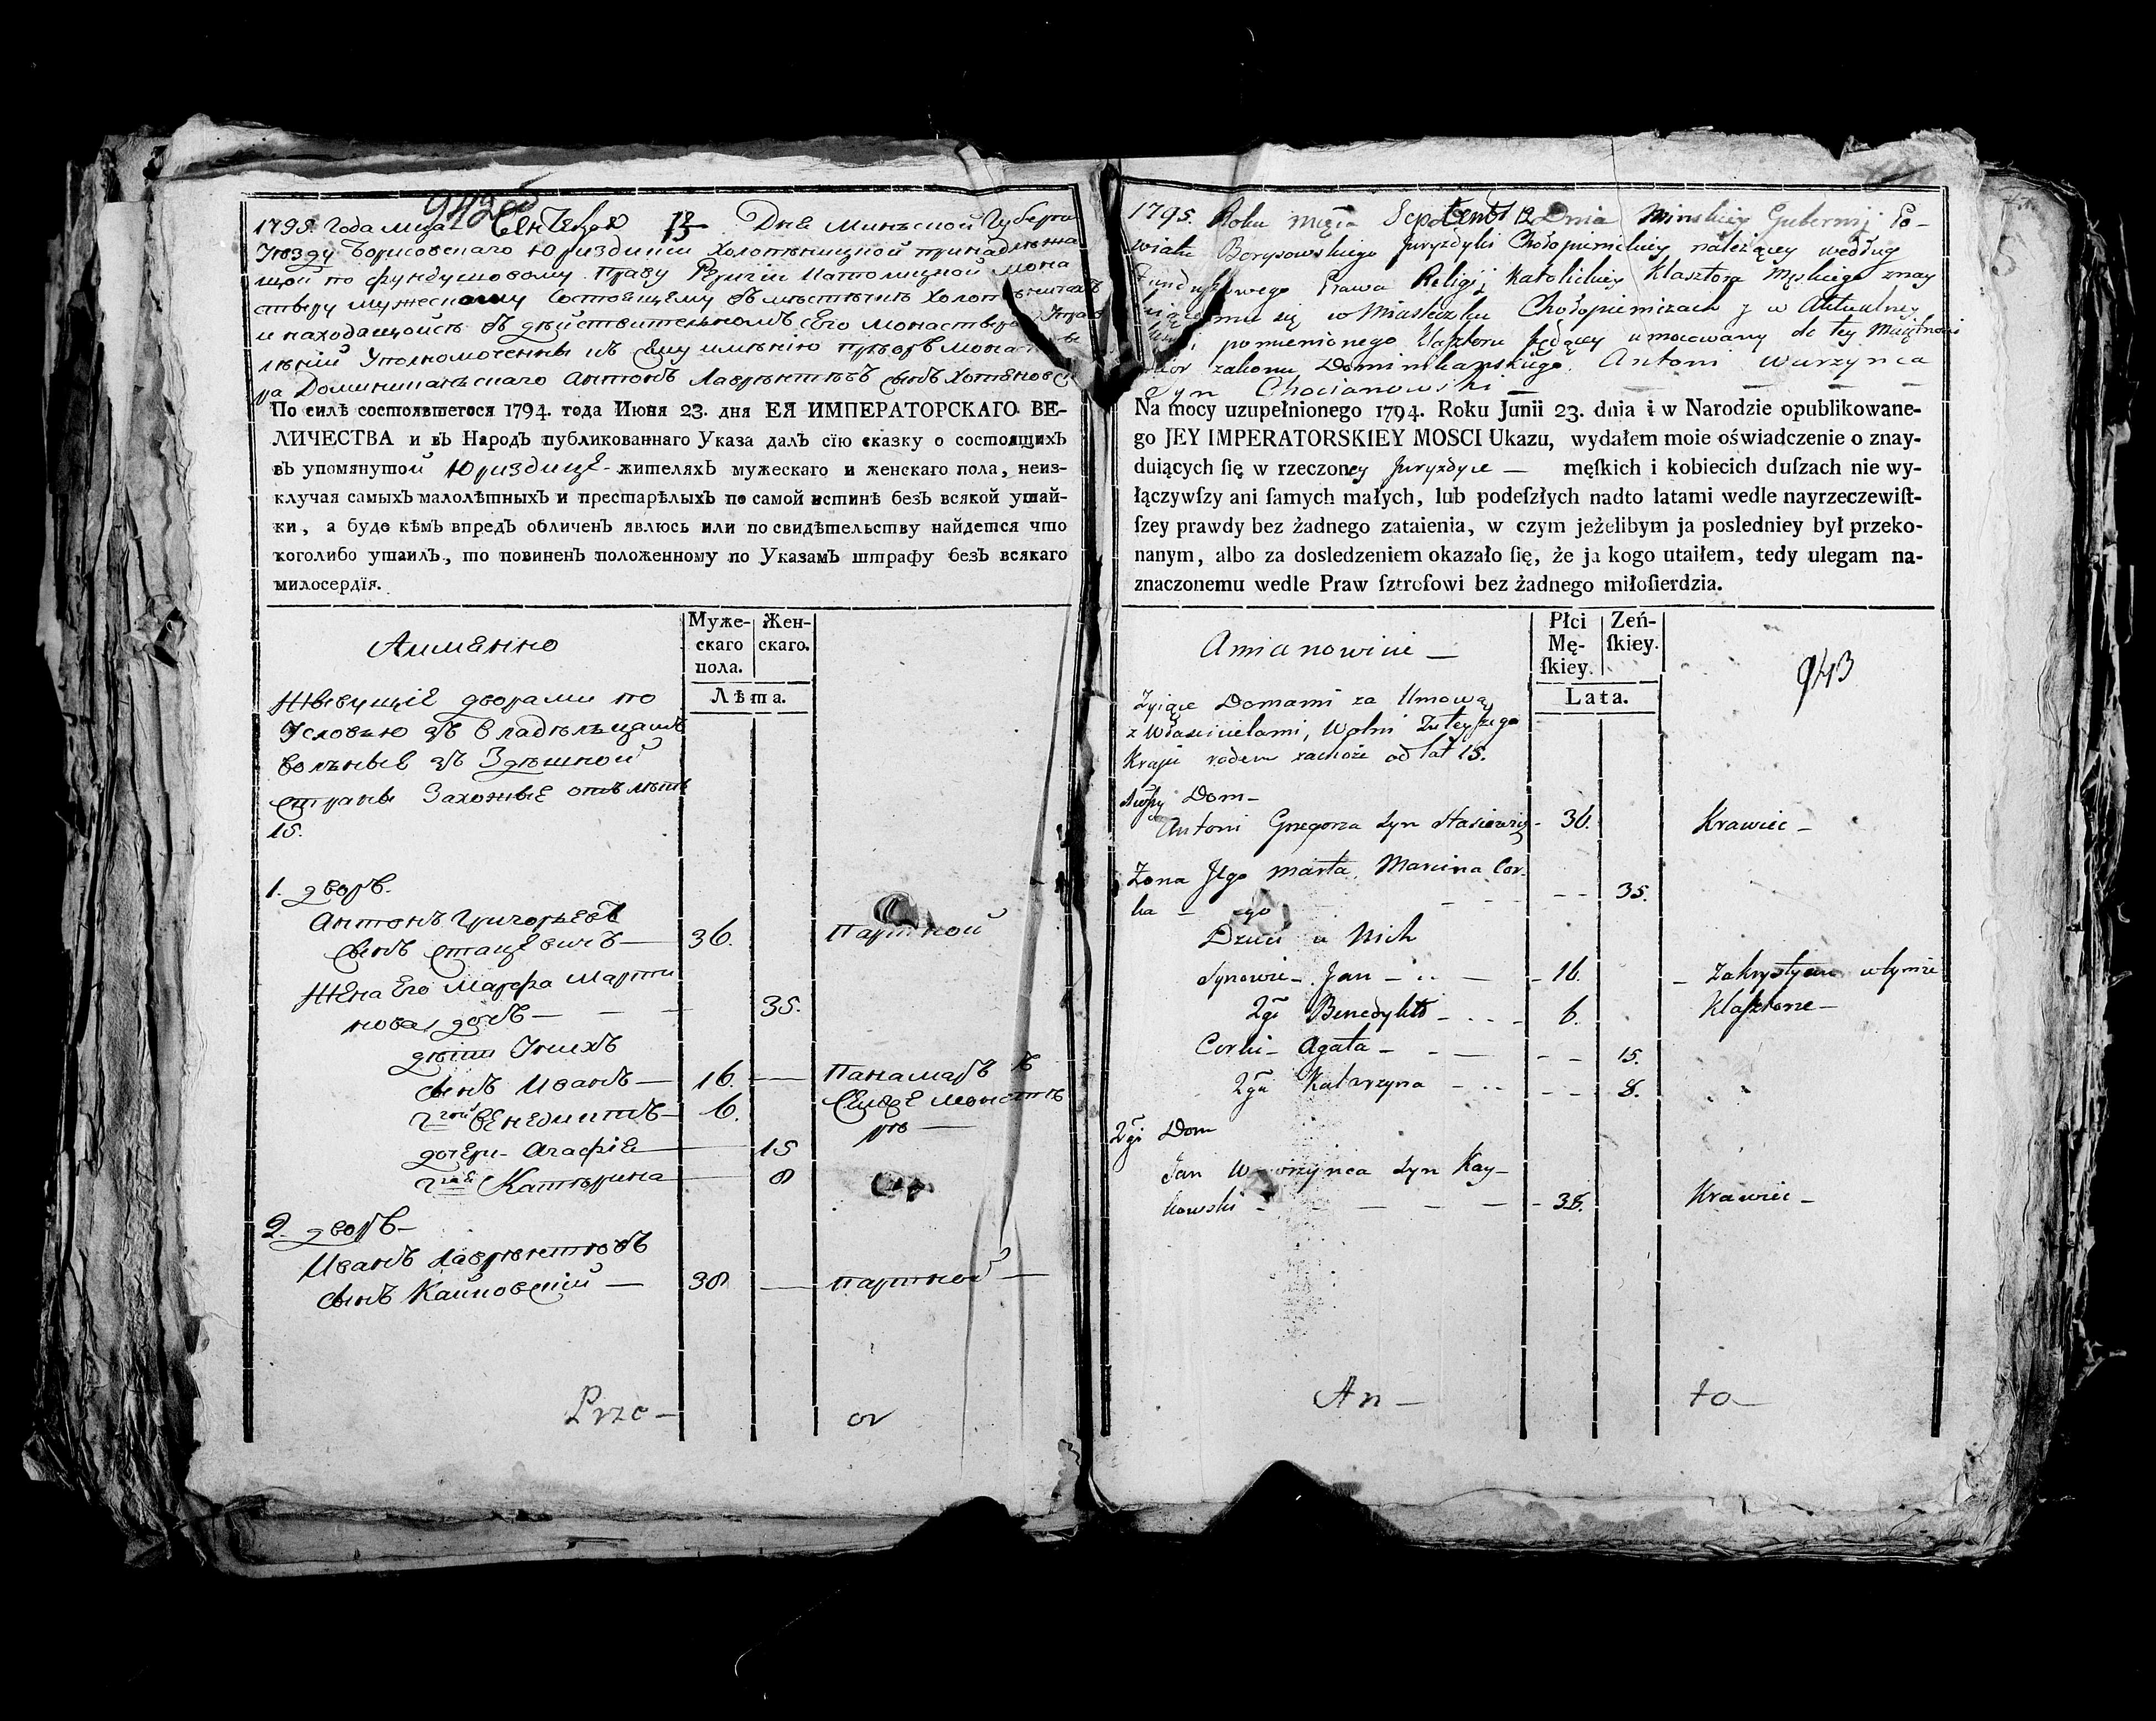 942
1795 Года мца Сентебря 12 Дня Минъской Губерн
Уезду Борисовскаго Юриздики Холопѣницкой принадлежа
щой по фундушовому Праву Религіи Католицкой мона
стыру мужескому состоящему въ мѣстѣчкѣ Холопѣничахъ
и находящойся въ дѣйствителъномъ его монастыра Управ
лѣніи Уполномоченны къ сему имѣнію приоръ монасты
ра Доминиканъскаго Антонъ Лаврѣнтѣвъ сынъ Хотяновски
По силѣ состоявшегося 1794. года Июня 23. дня ЕЯ ИМПЕРАТОРСКАГО ВЕ-
ЛИЧЕСТВА и въ Народъ публикованнаго Указа далъ сїю сказку о состоящихъ
въ упомянутой Юриздице жителяхъ мужескаго и женскаго пола, неиз-
ключая самыхъ малолѣтныхъ и престарѣлыхъ по самой истинѣ безъ всякой утай-
ки, а буде кѣмъ впредъ обличенъ явлюсь или по свидѣтельству найдется что
коголибо утаилъ, то повиненъ положенному по Указамъ штрафу безъ всякаго
милосердїя.
Аимѣнно
Муже-
скаго
пола.
Жен-
скаго.
Лѣта.
Живущіе дворами по
Условью зъ Владѣлъцами
волъные зъ Здѣшной
страны Захожые отъ лѣтъ
15.
1. дворъ.
Антонъ Григоръевъ
сынъ Стацевичъ — 36. Партной
Жена Его Марфа Марти
нова дочь — — — 35.
дѣти Унихъ
сынъ Иванъ — 16. — Панамаръ в
2гой Бенедиктъ — 6. Семъже монастѣ
ро —
дочери Агафіе — 15
2гая Катѣрина — 8
2. дворъ —
Иванъ Лаврѣнтѣвъ
сынъ Кайковскій — 38 — партной —
Prze — or
1795. Roku Męca Septembr 12 Dnia Minskiey Gubernij Po-
wiatu Borysowskiego Juryzdyki Chołopienickiey należącey według
Funduszowego Prawa Religij Katolickiey Klasztora Męskiego znay
duiącemu się w Miasteczku Chołopieniczach y w Aktualney
pomienionego klasztoru będący umocowany do tey Maiętnosci
zakonu Dominikanskiego Antoni Warzynca
Syn Chocianowski —
Na mocy uzupełnionego 1794. Roku Junii 23. dnia i w Narodzie opublikowane-
go JEY IMPERATORSKIEY MOSCI Ukazu, wydałem moie oświadczenie o znay-
duiących ſię w rzeczoney Juryzdyce — męſkich i kobiecich duſzach nie wy-
łączywſzy ani ſamych małych, lub podeſzłych nadto latami wedle nayrzeczewiſt-
ſzey prawdy bez żadnego zataienia, w czym jeżelibym ja posledniey był przeko-
nanym, albo za dosledzeniem okazało ſię, że ja kogo utaiłem, tedy ulegam na-
znaczonemu wedle Praw ſztrofowi bez żadnego miłoſierdzia.
Amianowicie —
Płci
Mę-
ſkiey.
Zeń-
ſkiey.
943
Lata.
Zyiące Domami za Umową
z Własicielami, Wolni Tuteyszego
Kraju rodem zachoże od lat 15.
Dom —
Antoni Grzegorza Syn Stasiewicz — 36. Krawiec —
Zona Jego Marta, Marcina Cor-
ka — — — 35.
Dzieci u Nich
Synowie — Jan — 16. — Zakrystyan w tymże
2gi Benedykt — 6. Klasztorze —
Corki — Agata — — — 15.
2ga Katarzyna — — — 8.
2gi Dom
Jan Wawrzynca Syn Kay-
kowski — — — — 38. Krawiec —
An — to —